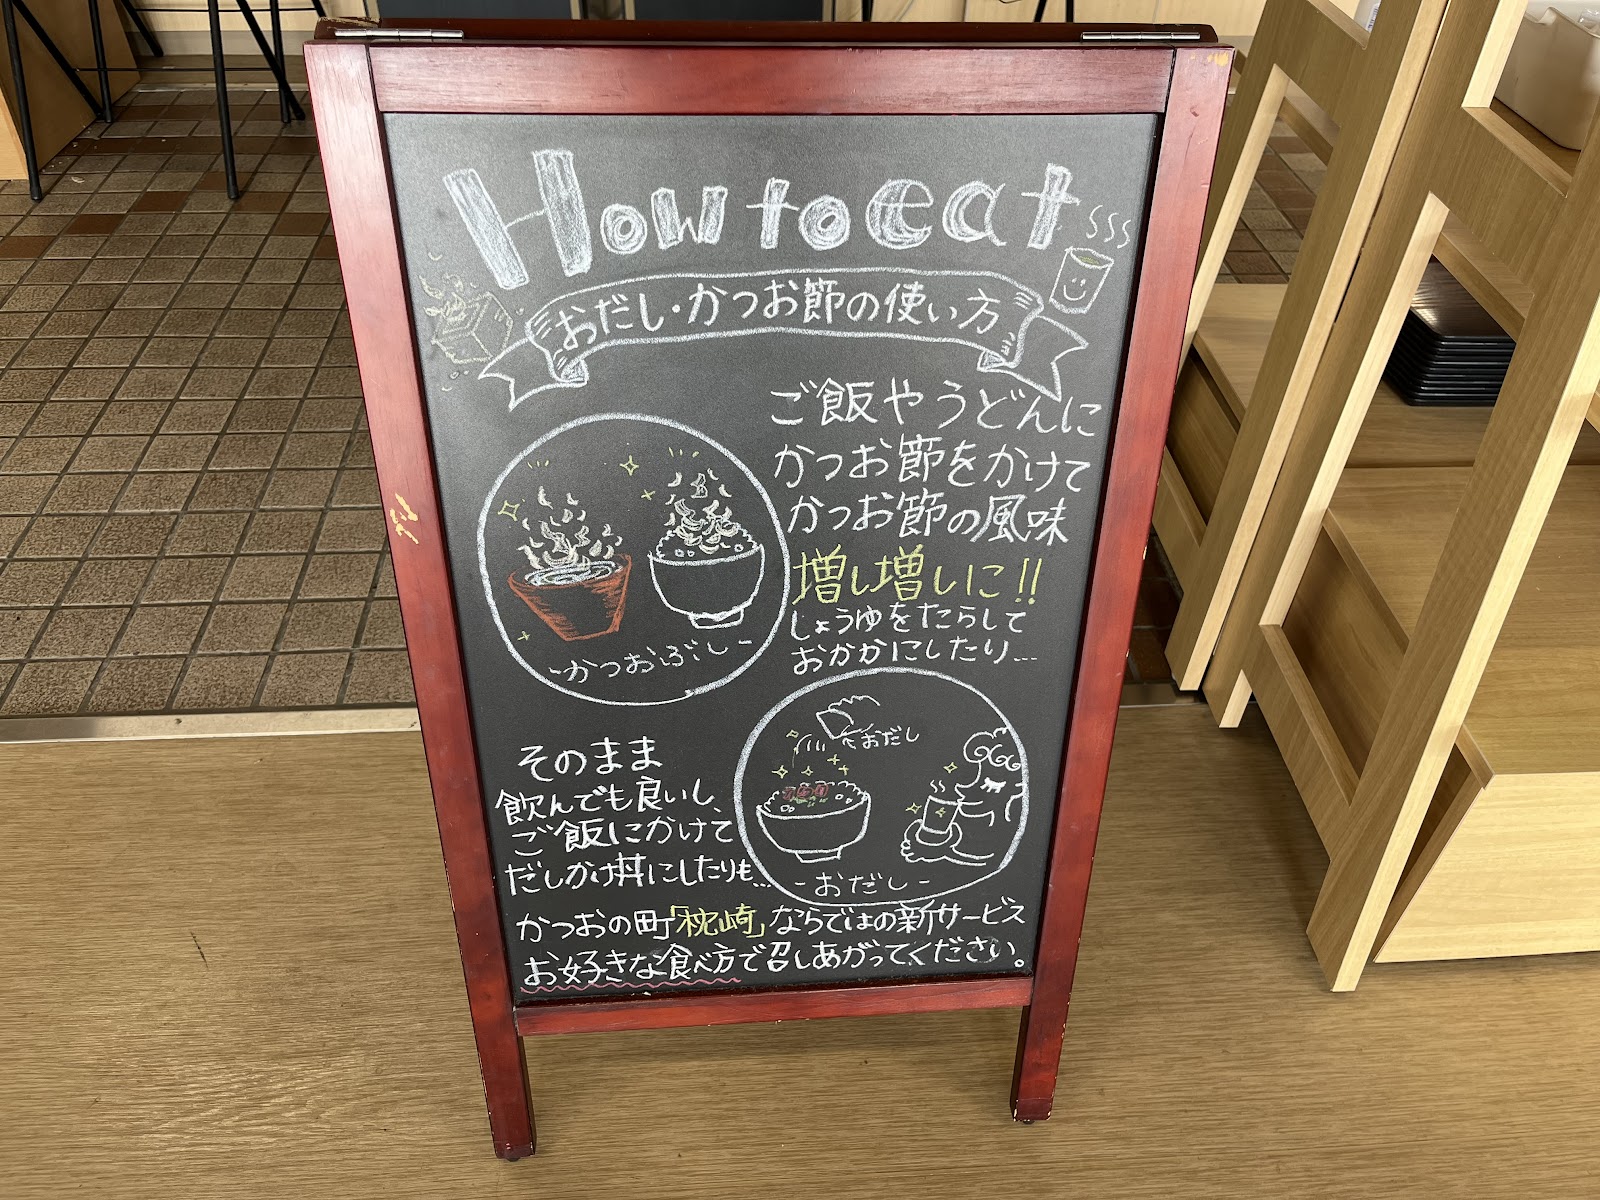 How to eat
おだし・かつお節の使い方
ご飯やうどんに
かつお節をかけて
かつお節の風味
増し増しに!!
じょうゆをたらして
おかかにしたり…
-かつおぶし-
おだし
-おだし-
そのまま
飲んでも良いし、
ご飯にかけて
だしかけ丼にしたりも…
かつおの町「枕崎」ならではの新サービス
お好きな食べ方で召しあがってください。